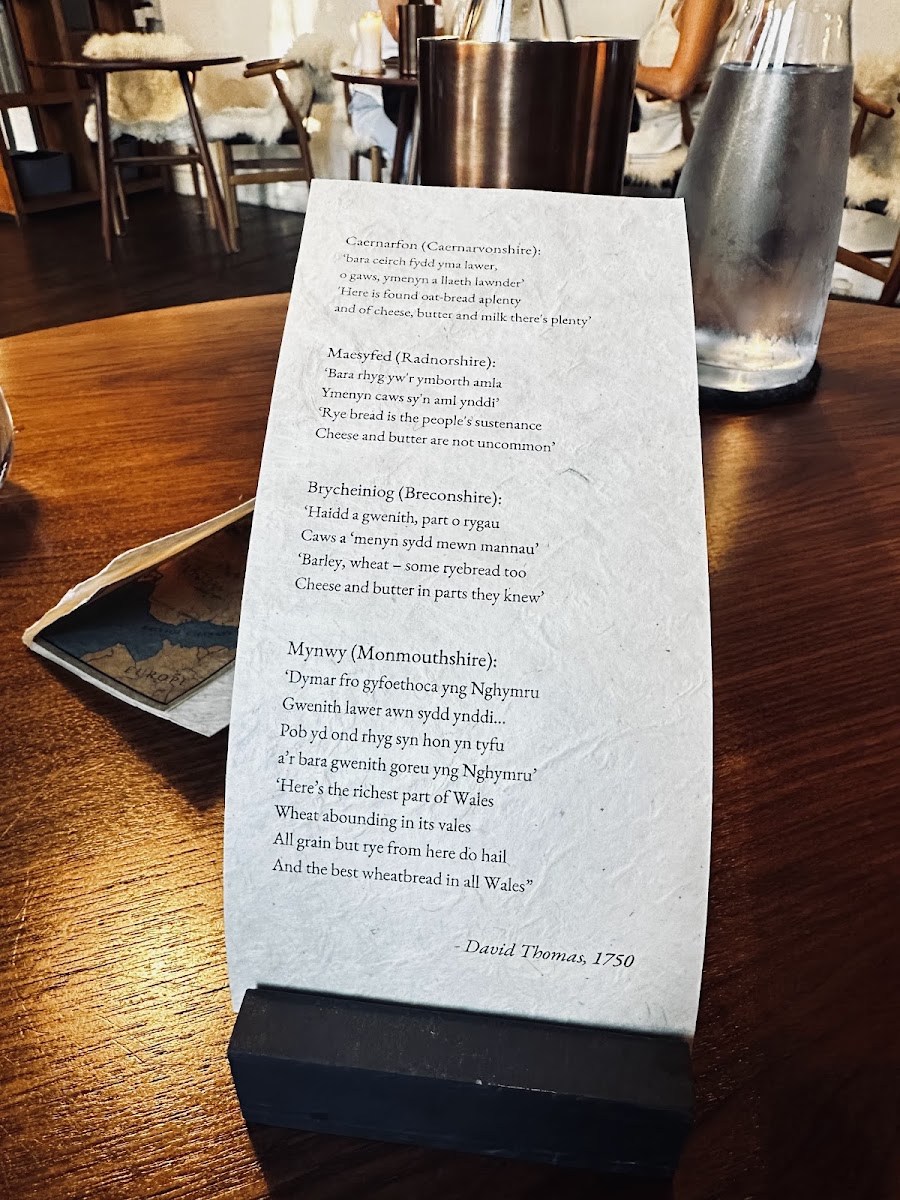 Caernarfon (Caernarvonshire):
‘bara ceirch fydd yma lawer,
o gaws, ymenyn a llaeth lawnder’
‘Here is found oat-bread aplenty
and of cheese, butter and milk there's plenty’
Maesyfed (Radnorshire):
‘Bara rhyg yw'r ymborth amla
Ymenyn caws sy'n aml ynddi’
‘Rye bread is the people's sustenance
Cheese and butter are not uncommon’
Brycheiniog (Breconshire):
‘Haidd a gwenith, part o rygau
Caws a ‘menyn sydd mewn mannau’
‘Barley, wheat – some ryebread too
Cheese and butter in parts they knew’
Mynwy (Monmouthshire):
‘Dymar fro gyfoethoca yng Nghymru
Gwenith lawer awn sydd ynddi...
Pob yd ond rhyg syn hon yn tyfu
a’r bara gwenith goreu yng Nghymru’
‘Here’s the richest part of Wales
Wheat abounding in its vales
All grain but rye from here do hail
And the best wheatbread in all Wales”
- David Thomas, 1750